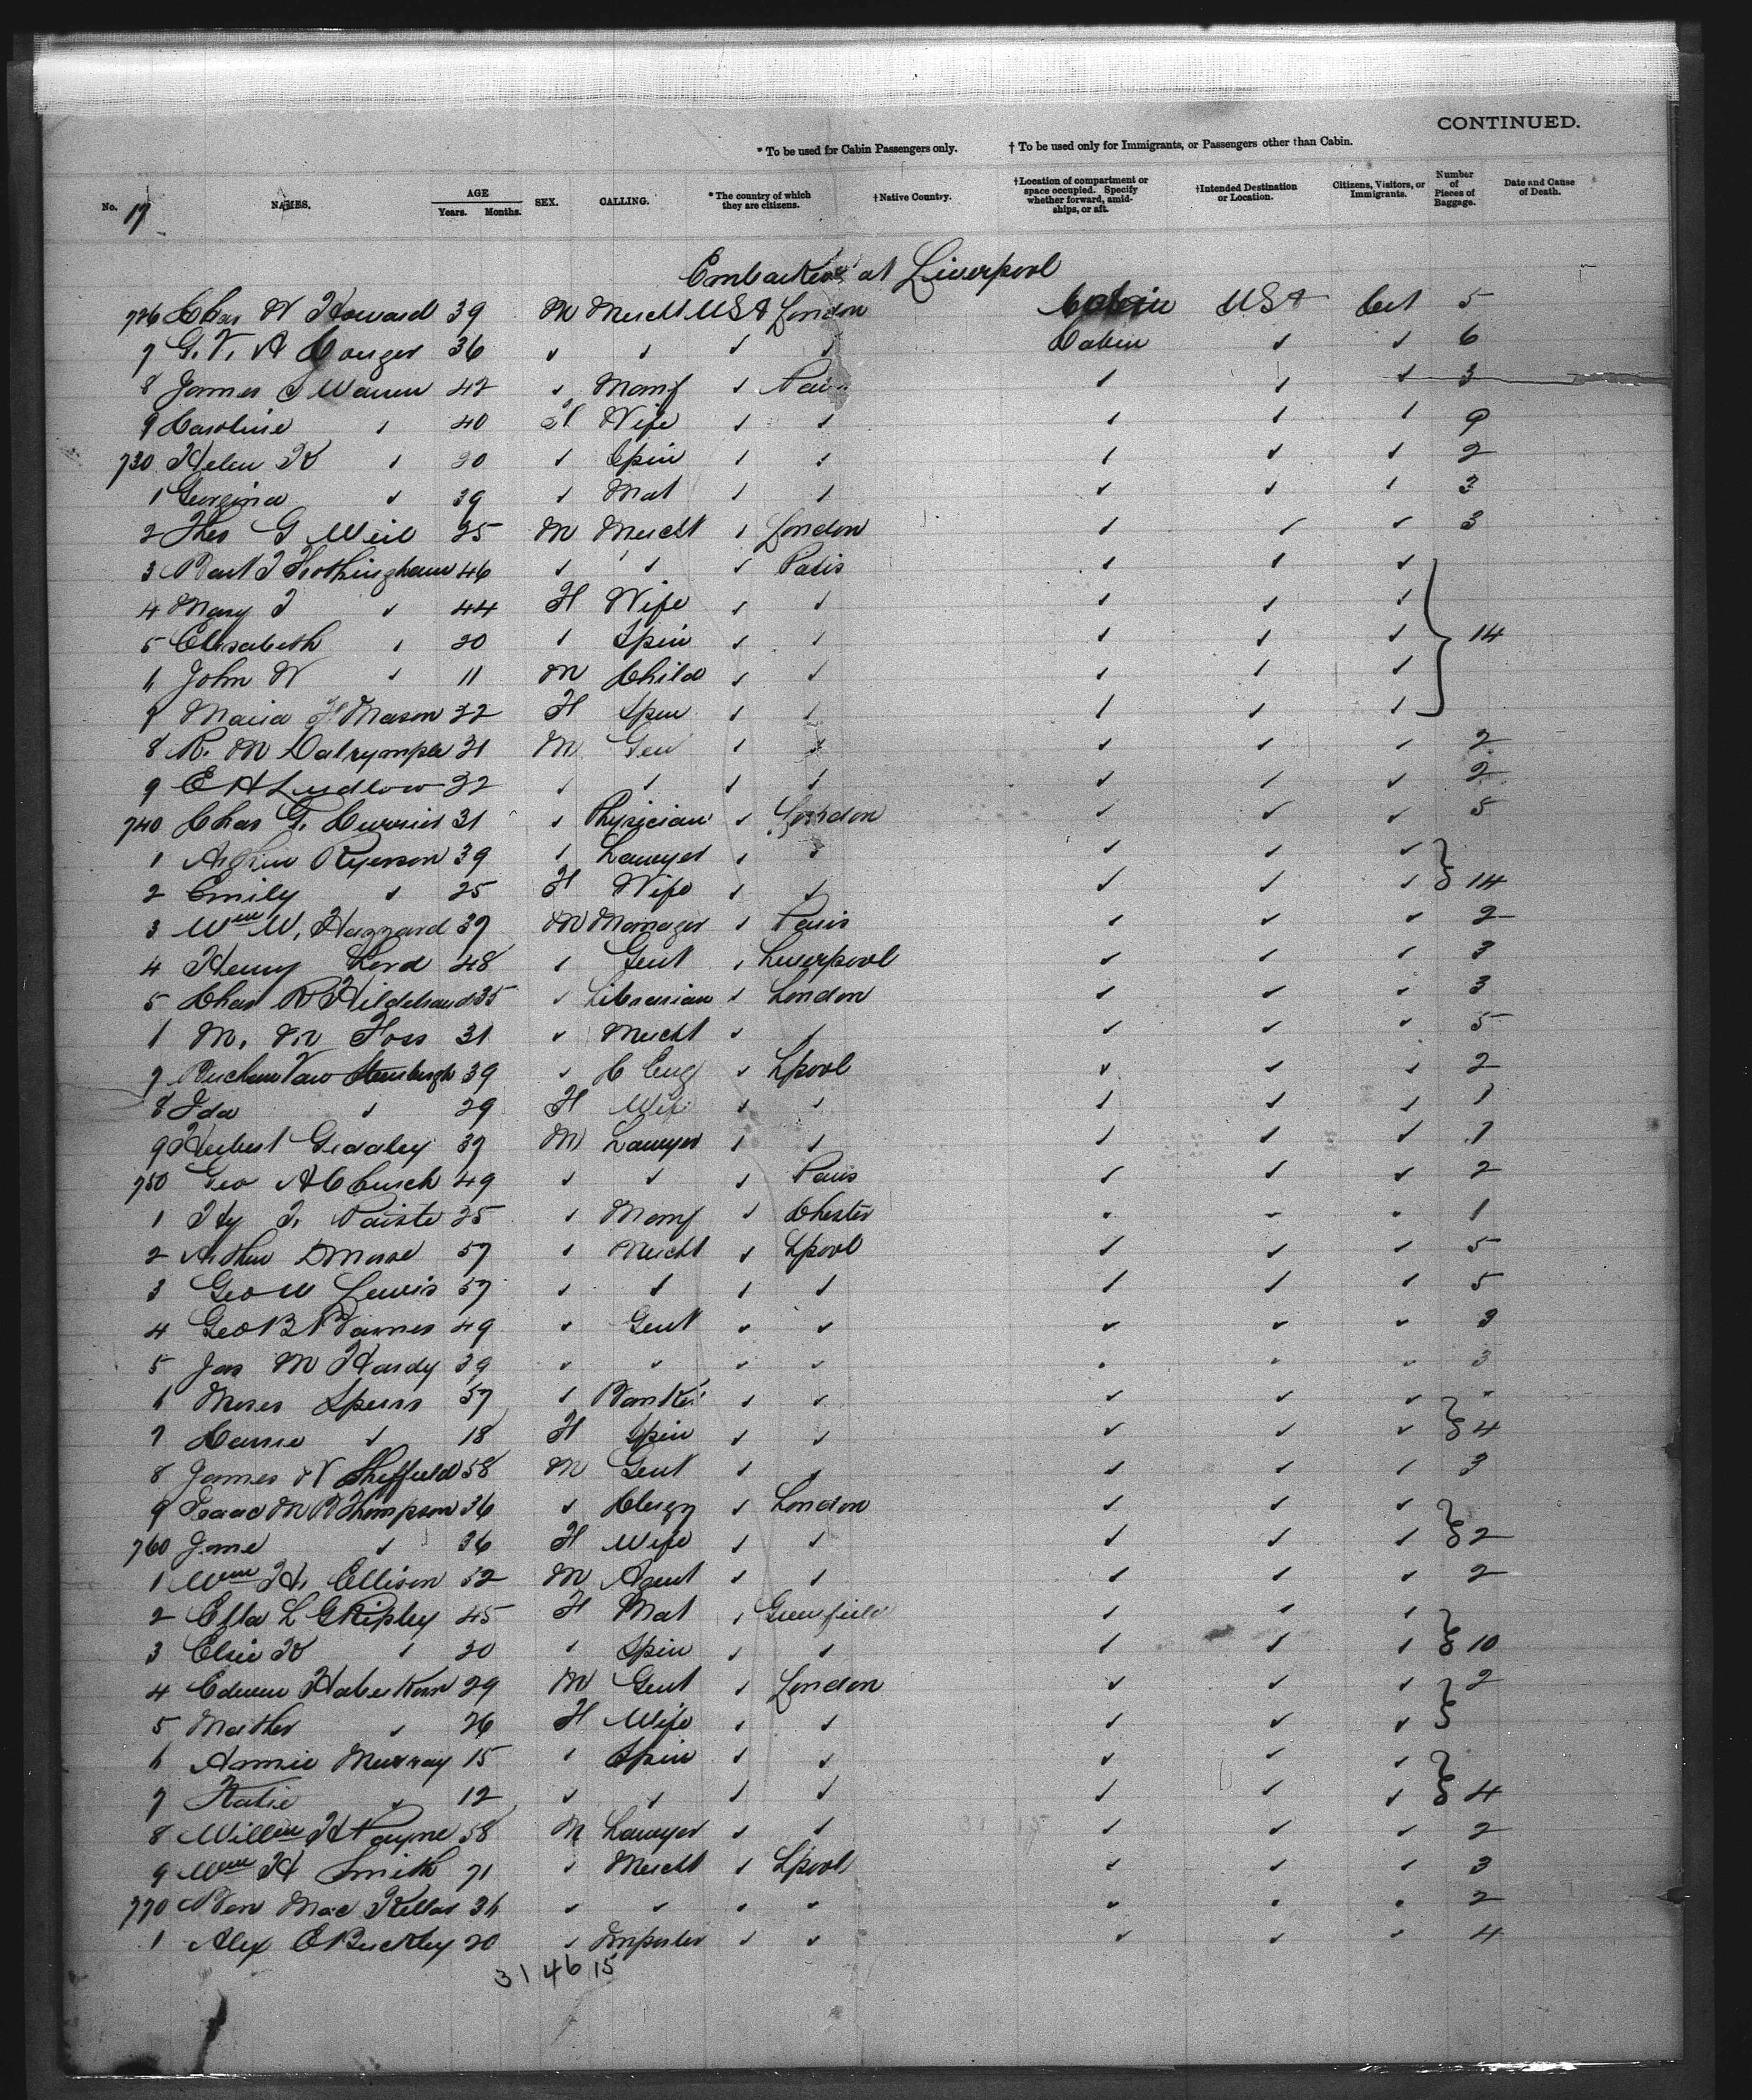 CONTINUED.
* To be used for Cabin Passengers only. † To be used only for Immigrants, or Passengers other than Cabin.
No. 17 NAMES. AGE Years. Months. SEX. CALLING. * The country of which they are citizens. † Native Country. † Location of compartment or space occupied. Specify whether forward, amidships, or aft. † Intended Destination or Location. Citizens, Visitors, or Immigrants. Number of Pieces of Baggage. Date and Cause of Death.
Embarked at Liverpool
726 Chas W Howard 39 M Mercht USA London Cabin USA Cit 5
7 G. V. A Conger 36 ✓ ✓ ✓ ✓ Cabin ✓ ✓ 6
8 James S Warren 42 ✓ Manf ✓ ✓ ✓ ✓ 3
9 Caroline ✓ 40 Wife ✓ ✓ ✓ ✓ ✓ 9
730 Helen K ✓ 20 ✓ Spin ✓ ✓ ✓ ✓ ✓ 2
1 Georgina ✓ 39 ✓ Mat ✓ ✓ ✓ ✓ ✓ 3
2 Theo G Weil 25 M Mercht ✓ London ✓ ✓ ✓ 3
3 T Frothingham 46 ✓ ✓ ✓ Paris ✓ ✓ ✓
4 Mary T ✓ 44 F Wife ✓ ✓ ✓ ✓ ✓
5 Elisabeth ✓ 20 ✓ Spin ✓ ✓ ✓ ✓ ✓ 14
6 John W ✓ 11 M Child ✓ ✓ ✓ ✓ ✓
7 Maria F Mason 32 F Spin ✓ ✓ ✓ ✓ ✓
8 R. M Dalrymple 31 M Gen ✓ ✓ ✓ ✓ ✓ 2
9 E H Ludlow 32 ✓ ✓ ✓ ✓ ✓ ✓ ✓ 2
740 Chas G. Currier 31 ✓ Physician ✓ London ✓ ✓ ✓ 5
1 Ryerson 39 ✓ Lawyer ✓ ✓ ✓ ✓ ✓
2 Emily ✓ 25 F Wife ✓ ✓ ✓ ✓ ✓ 14
3 Wm W. Hazzard 37 M Manager ✓ Paris ✓ ✓ ✓ 2
4 Henry Lord 48 ✓ Gent ✓ Liverpool ✓ ✓ ✓ 3
5 Chas R Hildebrand 35 ✓ Librarian ✓ London ✓ ✓ ✓ 3
6 M. Foss 31 ✓ Mercht ✓ ✓ ✓ ✓ ✓ 5
7 Van Steenburgh 39 ✓ C Eng ✓ Lpool ✓ ✓ ✓ 2
8 Ida ✓ 29 F Wife ✓ ✓ ✓ ✓ ✓ 1
9 Herbert Gedaley 37 M Lawyer ✓ ✓ ✓ ✓ ✓ 1
750 Geo A Church 49 ✓ ✓ ✓ Paris ✓ ✓ ✓ 2
1 Hy T. Paiste 25 ✓ Manf ✓ Chester ✓ ✓ ✓ 1
2 Arthur D Morse 57 ✓ Mercht ✓ Lpool ✓ ✓ ✓ 5
3 Geo W Lewis 57 ✓ ✓ ✓ ✓ ✓ ✓ ✓ 5
4 Geo B Barnes 49 ✓ Gent ✓ ✓ ✓ ✓ ✓ 3
5 Jas M Hardy 39 ✓ ✓ ✓ ✓ ✓ ✓ ✓ 3
6 Moses 57 ✓ Banker ✓ ✓ ✓ ✓ ✓
7 Carrie ✓ 18 F Spin ✓ ✓ ✓ ✓ ✓ 4
8 James N Sheffield 58 M Gent ✓ ✓ ✓ ✓ ✓ 3
9 Isaac M B Thompson 36 ✓ Clergy ✓ London ✓ ✓ ✓
760 Jane ✓ 36 F Wife ✓ ✓ ✓ ✓ ✓ 2
1 Wm H. Ellison 52 M Agent ✓ ✓ ✓ ✓ ✓ 2
2 Etta L G Ripley 45 F Mat ✓ Greenfield ✓ ✓ ✓
3 Elsie K ✓ 20 ✓ Spin ✓ ✓ ✓ ✓ ✓ 10
4 Edwin Haberkorn 29 M Gent ✓ London ✓ ✓ ✓ 2
5 ✓ 26 F Wife ✓ ✓ ✓ ✓ ✓
6 Annie Murray 15 ✓ Spin ✓ ✓ ✓ ✓ ✓
7 Katie ✓ 12 ✓ ✓ ✓ ✓ ✓ ✓ ✓ 4
8 Willm H Payne 58 M Lawyer ✓ ✓ ✓ ✓ ✓ 2
9 Wm H Smith 71 ✓ Mercht ✓ Lpool ✓ ✓ ✓ 3
770 Ben Mac Kellar 36 ✓ ✓ ✓ ✓ ✓ ✓ ✓ 2
1 Alex E Buckley 20 ✓ Importer ✓ ✓ ✓ ✓ ✓ 4
31 46 15